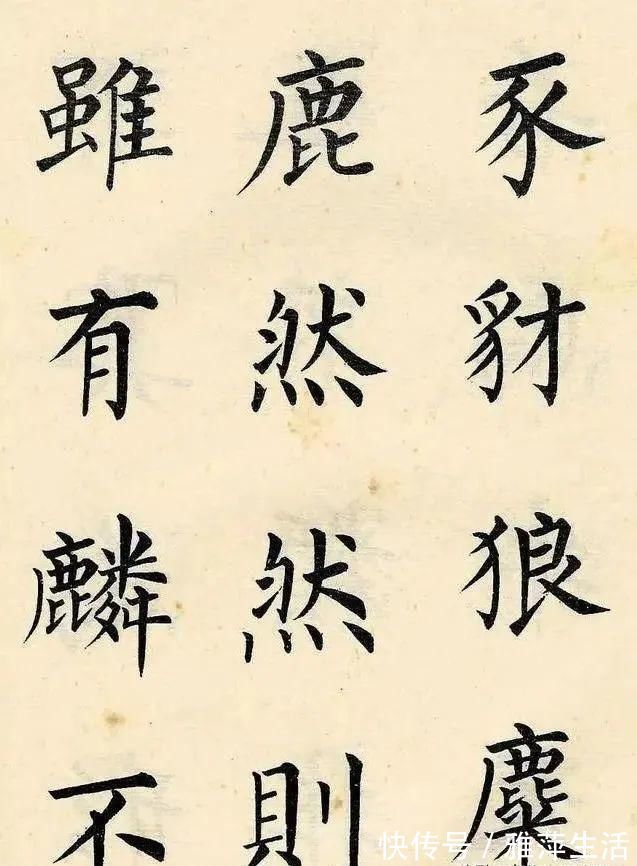 豕豺狼麋
鹿然然則
雖有麟不
快传号 / 雅萍生活